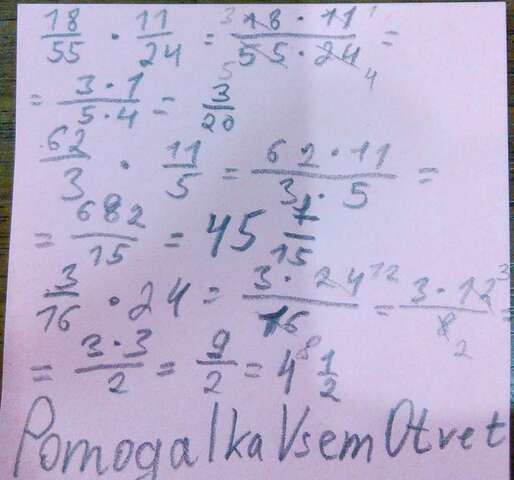 18/55 · 11/24 = ³18 · 11¹/₅55 · 24₄ =
= 3·1/5·4 = 3/20
62/3 · 11/5 = 62·11/3·5 =
= 682/15 = 45 7/15
3/16 · 24 = 3·24¹²/16₈ = 3·12³/8₂ =
= 3·3/2 = 9/2 = 4 1/2
PomogalkaVsemOtvet